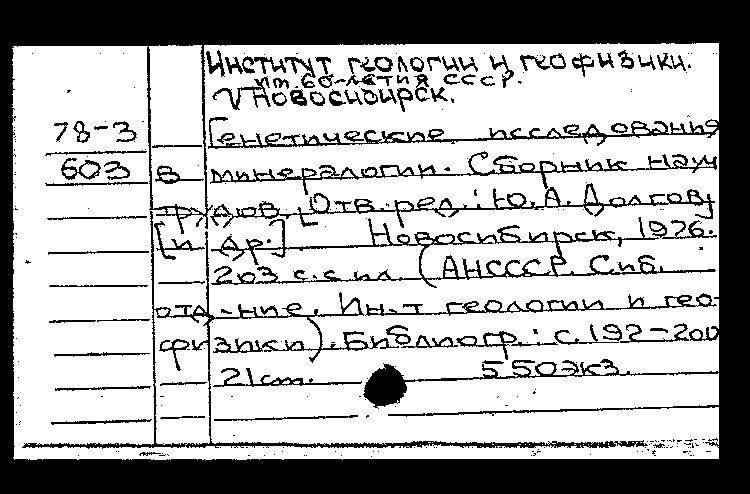 Институт геологии и геофизики.
им. 60-летия СССР.
Новосибирск.
78-3 Генетические исследования
603 в минералогии. Сборник науч
трудов. [Отв. ред.: Ю.А. Долгов,
[и др.]. Новосибирск, 1976.
203 с. с ил. (АНСССР. Сиб.
отд-ние. Ин-т геологии и гео-
физики). Библиогр.: с. 192-200
21 cm. 550 экз.